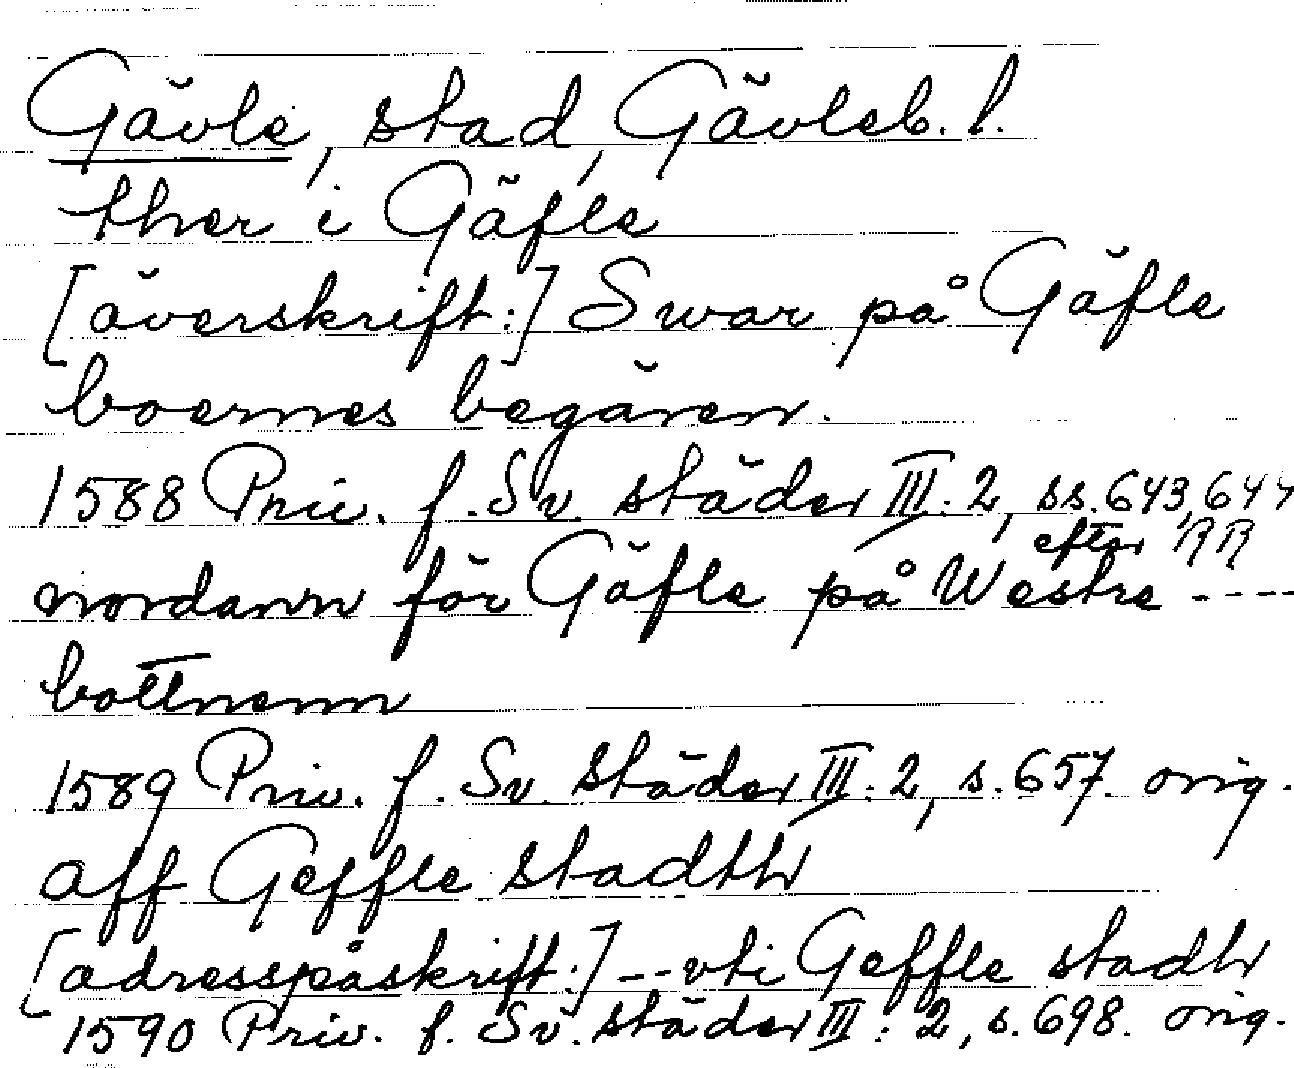 Gävle, stad, Gävleb. l.
ther i Gäfle
[överskrift:] Swar på Gäfle
boernes begären.
1588 Priv. f. Sv. städer III: 2, ss. 643, 644
efter RR
nordann för Gäfle på Westre ----
bottnenn
1589 Priv. f. Sv. städer III: 2, s. 657. orig.
aff Geffle stadth
[adresspåskrift:] -- vti Geffle stadh
1590 Priv. f. Sv. städer III: 2, s. 698. orig.